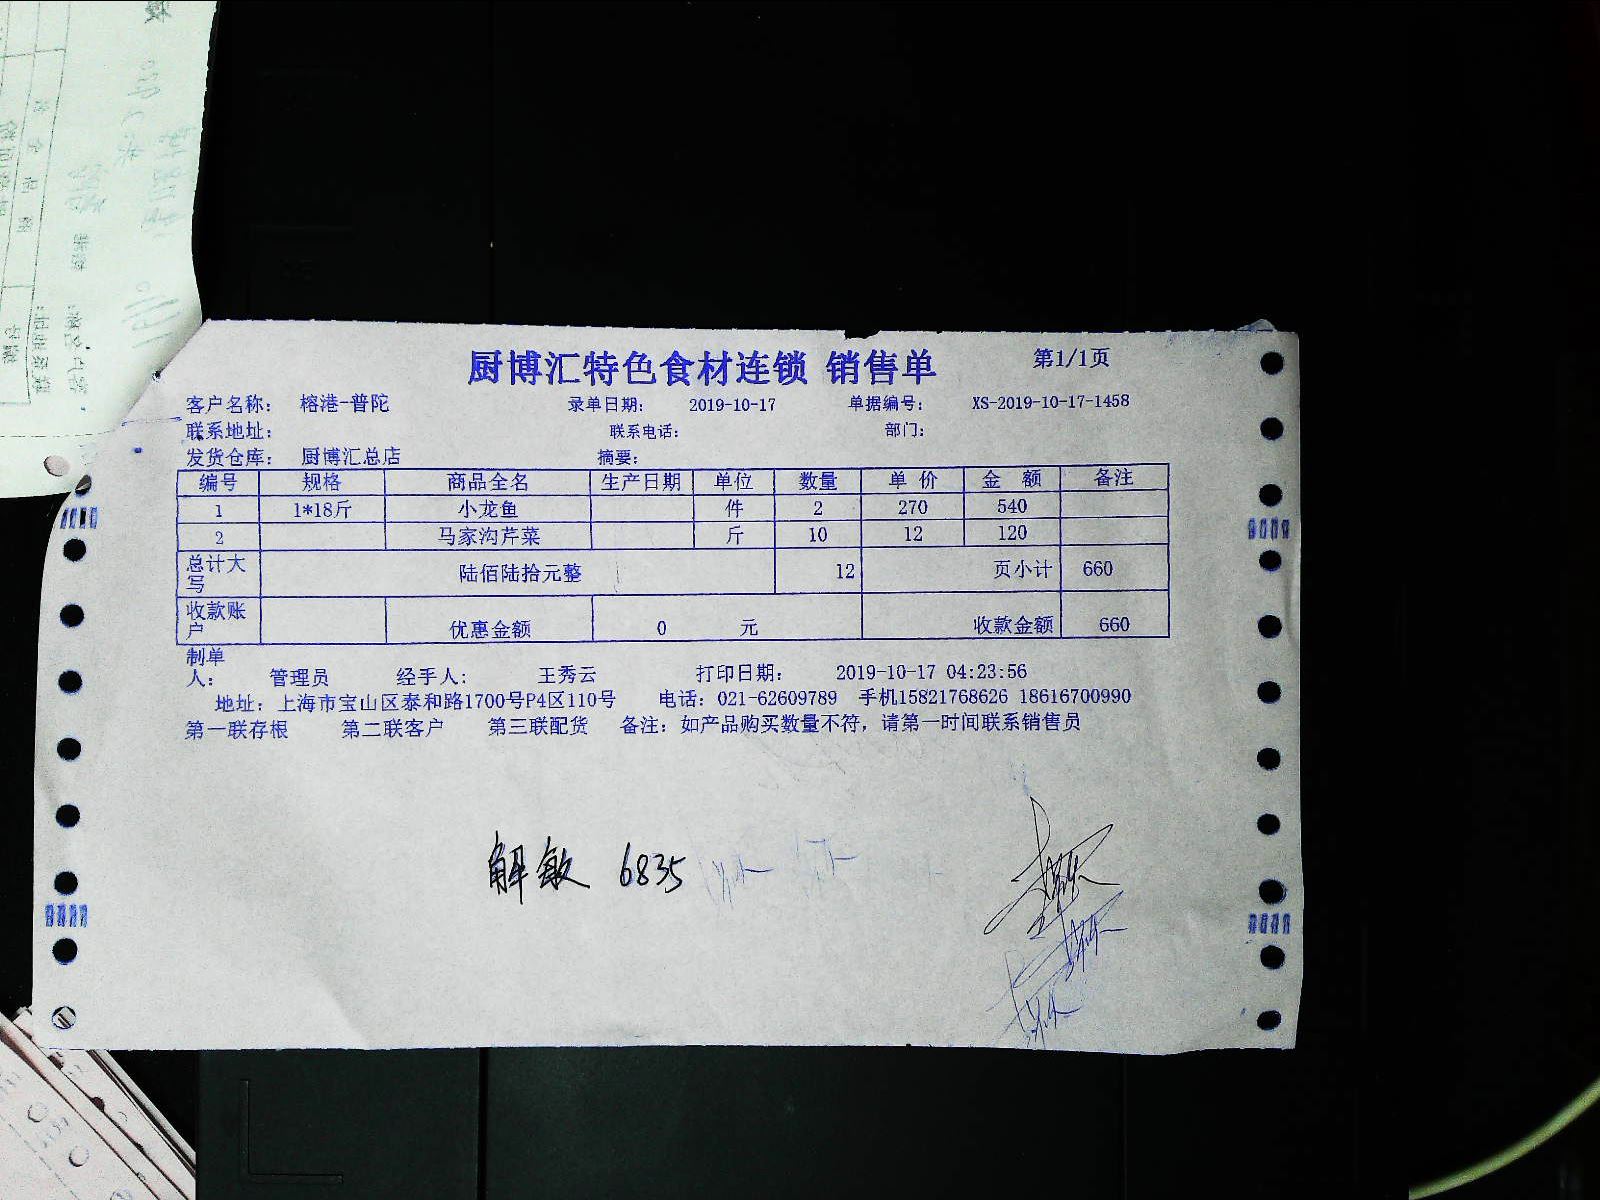 厨博汇特色食材连锁 销售单 第1/1页
客户名称： 榕港-普陀 录单日期： 2019-10-17 单据编号： XS-2019-10-17-1458
联系地址： 联系电话： 部门：
发货仓库： 厨博汇总店 摘要：
编号 规格 商品全名 生产日期 单位 数量 单 价 金 额 备注
1 1*18斤 小龙鱼 件 2 270 540
2 马家沟芹菜 斤 10 12 120
总计大写 陆佰陆拾元整 12 页小计 660
收款账户 优惠金额 0 元 收款金额 660
制单人： 管理员 经手人： 王秀云 打印日期： 2019-10-17 04:23:56
地址：上海市宝山区泰和路1700号P4区110号 电话：021-62609789 手机15821768626 18616700990
第一联存根 第二联客户 第三联配货 备注：如产品购买数量不符，请第一时间联系销售员
解敏 6835